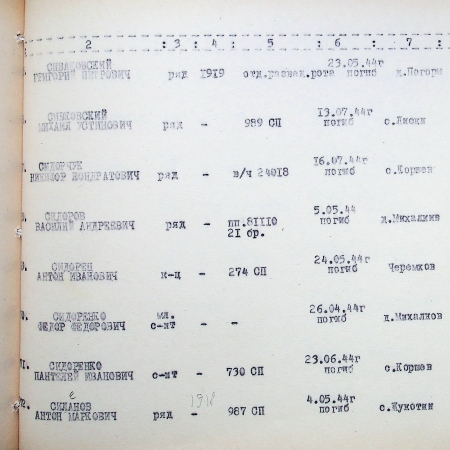 2 : 3 : 4 : 5 : 6 : 7 :
СИВАКОВСКИЙ
ГРИГОРИЙ ПЕТРОВИЧ ряд 1919 отд.развед.рота 23.05.44г погиб д.Погоры
СИВКОВСКИЙ
МИХАИЛ УСТИНОВИЧ ряд - 989 СП 13.07.44г погиб с.Диски
СИДОРЧУК
НИКИФОР КОНДРАТОВИЧ ряд - в/ч 24018 16.07.44г погиб с.Коршев
СИДОРОВ
ВАСИЛИЙ АНДРЕЕВИЧ ряд - пп.81110 21 бр. 5.05.44 погиб д.Михалкив
СИДОРЕН
АНТОН ИВАНОВИЧ к-ц - 274 СП 24.05.44г погиб Черемков
СИДОРЕНКО
ФЕДОР ФЕДОРОВИЧ мл. с-нт - - 26.04.44г погиб д.Михалков
СИДОРЕНКО
ПАНТЕЛЕЙ ИВАНОВИЧ с-нт - 730 СП 23.06.44г погиб с.Коршев
СИЛАНОВ
АНТОН МАРКОВИЧ ряд - 1918 987 СП 4.05.44г погиб с.Жукотин